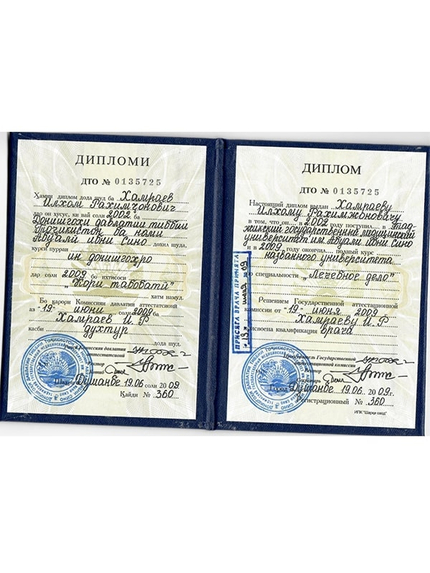 ДИПЛОМИ
ДТО № 0135725
Ҳамин диплом дода шуд ба Хамраев
Илхом Рахимҷонович
дар он хусус, ки вай соли 2002 ба
Донишгоҳи давлатии тиббии
Тоҷикистон ба номи
Абӯалӣ ибни Сино дохил шуда,
курси пурраи
ин донишгоҳро
дар соли 2009 бо ихтисоси
"Кори табобатӣ"
хатм намуд.
Бо қарори Комиссияи давлатии аттестатсионӣ
аз 19 июни 2009
Хамраев И.Р
духтур
дода шуд.
Душанбе 19.06 соли 2009
Қайди № 360
ДИПЛОМ
ДТО № 0135725
Настоящий диплом выдан Хамраеву
Илхому Рахимжоновичу
в том, что он в 2009
году поступил в Тад-
жикский государственный медицинский
университет им Абуали ибни Сино
и в 2009 году окончил полный курс
названного университета
по специальности „Лечебное дело"
Решением Государственной аттестационной
комиссии от "19" июня 2009
Хамраеву И.Р
присвоена квалификация Врача
ПРИСЯГА ВРАЧА ПРИНЯТА
Государственной
комиссии
Душанбе 19.06. 2009г.
Регистрационный № 360